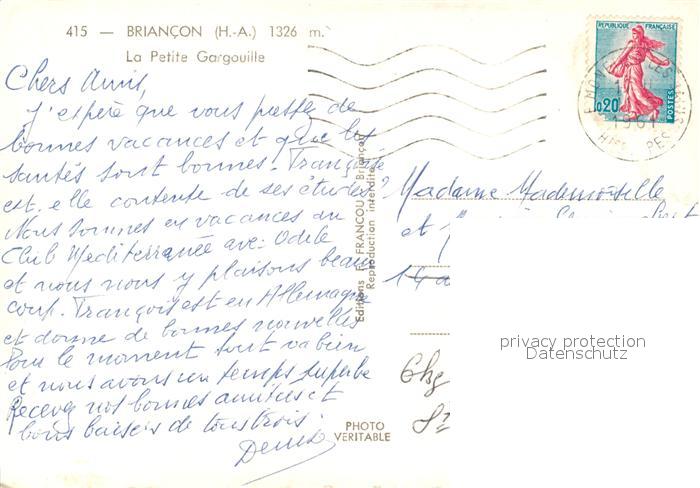 415 — BRIANÇON (H.-A.) 1326 m.
La Petite Gargouille
Chers Amis,
J'espère que vous passez de
bonnes vacances et que les
santés sont bonnes. Françoise
est-elle contente de ses études ?
Nous sommes en vacances au
Club Mediterranée avec Odile
et nous nous y plaisons beau
coup. François est en Allemagne
et donne de bonnes nouvelles
Pour le moment tout va bien
et nous avons un temps superbe
Recevez nos bonnes amitiés et
bons baisers de tous trois.
Editions F. FRANCOU Briançon
Reproduction interdite
PHOTO
VERITABLE
REPUBLIQUE FRANÇAISE
0,20
POSTES
1961
Madame Mademoiselle
et
privacy protection
Datenschutz